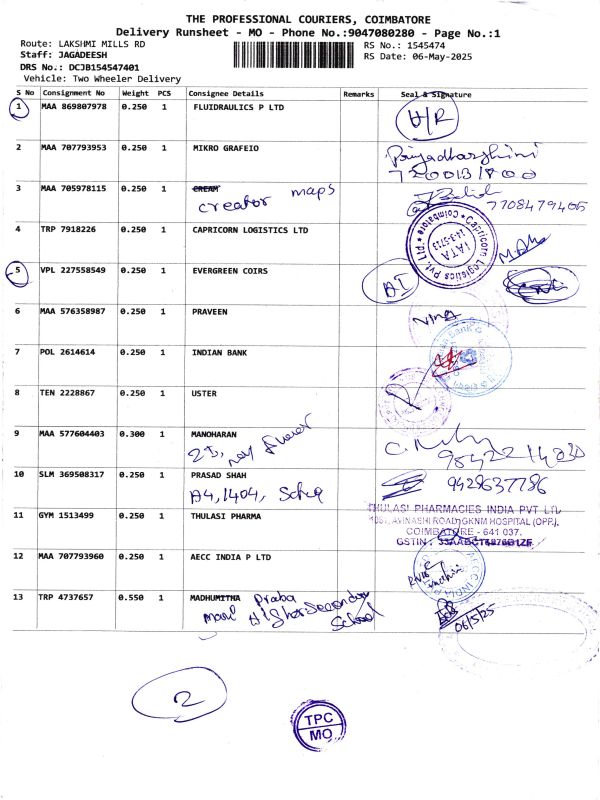 THE PROFESSIONAL COURIERS, COIMBATORE
Delivery Runsheet - MO - Phone No.:9047080280 - Page No.:1
Route: LAKSHMI MILLS RD
RS No.: 1545474
Staff: JAGADEESH
RS Date: 06-May-2025
DRS No.: DCJB154547401
Vehicle: Two Wheeler Delivery
S No Consignment No Weight PCS Consignee Details Remarks Seal & Signature
1 MAA 869807978 0.250 1 FLUIDRAULICS P LTD
2 MAA 707793953 0.250 1 MIKRO GRAFEIO
Priyadharshini
3 MAA 705978115 0.250 1 CREAM
creator maps
7708479405
4 TRP 7918226 0.250 1 CAPRICORN LOGISTICS LTD
Capricorn Logistics Pvt. Ltd. * Coimbatore *
IATA
14-3-5723
5 VPL 227558549 0.250 1 EVERGREEN COIRS
6 MAA 576358987 0.250 1 PRAVEEN
7 POL 2614614 0.250 1 INDIAN BANK
8 TEN 2228867 0.250 1 USTER
9 MAA 577604403 0.300 1 MANOHARAN
10 SLM 369508317 0.250 1 PRASAD SHAH
9428637786
A4, 1404,
11 GYM 1513499 0.250 1 THULASI PHARMA
THULASI PHARMACIES INDIA PVT LTD
AVINASHI ROAD, GKNM HOSPITAL (OPP.),
COIMBATORE - 641 037.
GSTIN: 33AABCT6876B1ZF
12 MAA 707793960 0.250 1 AECC INDIA P LTD
13 TRP 4737657 0.550 1 MADHUMITHA Praba
Higher Secondary
School
06/5/25
2
TPC
MO